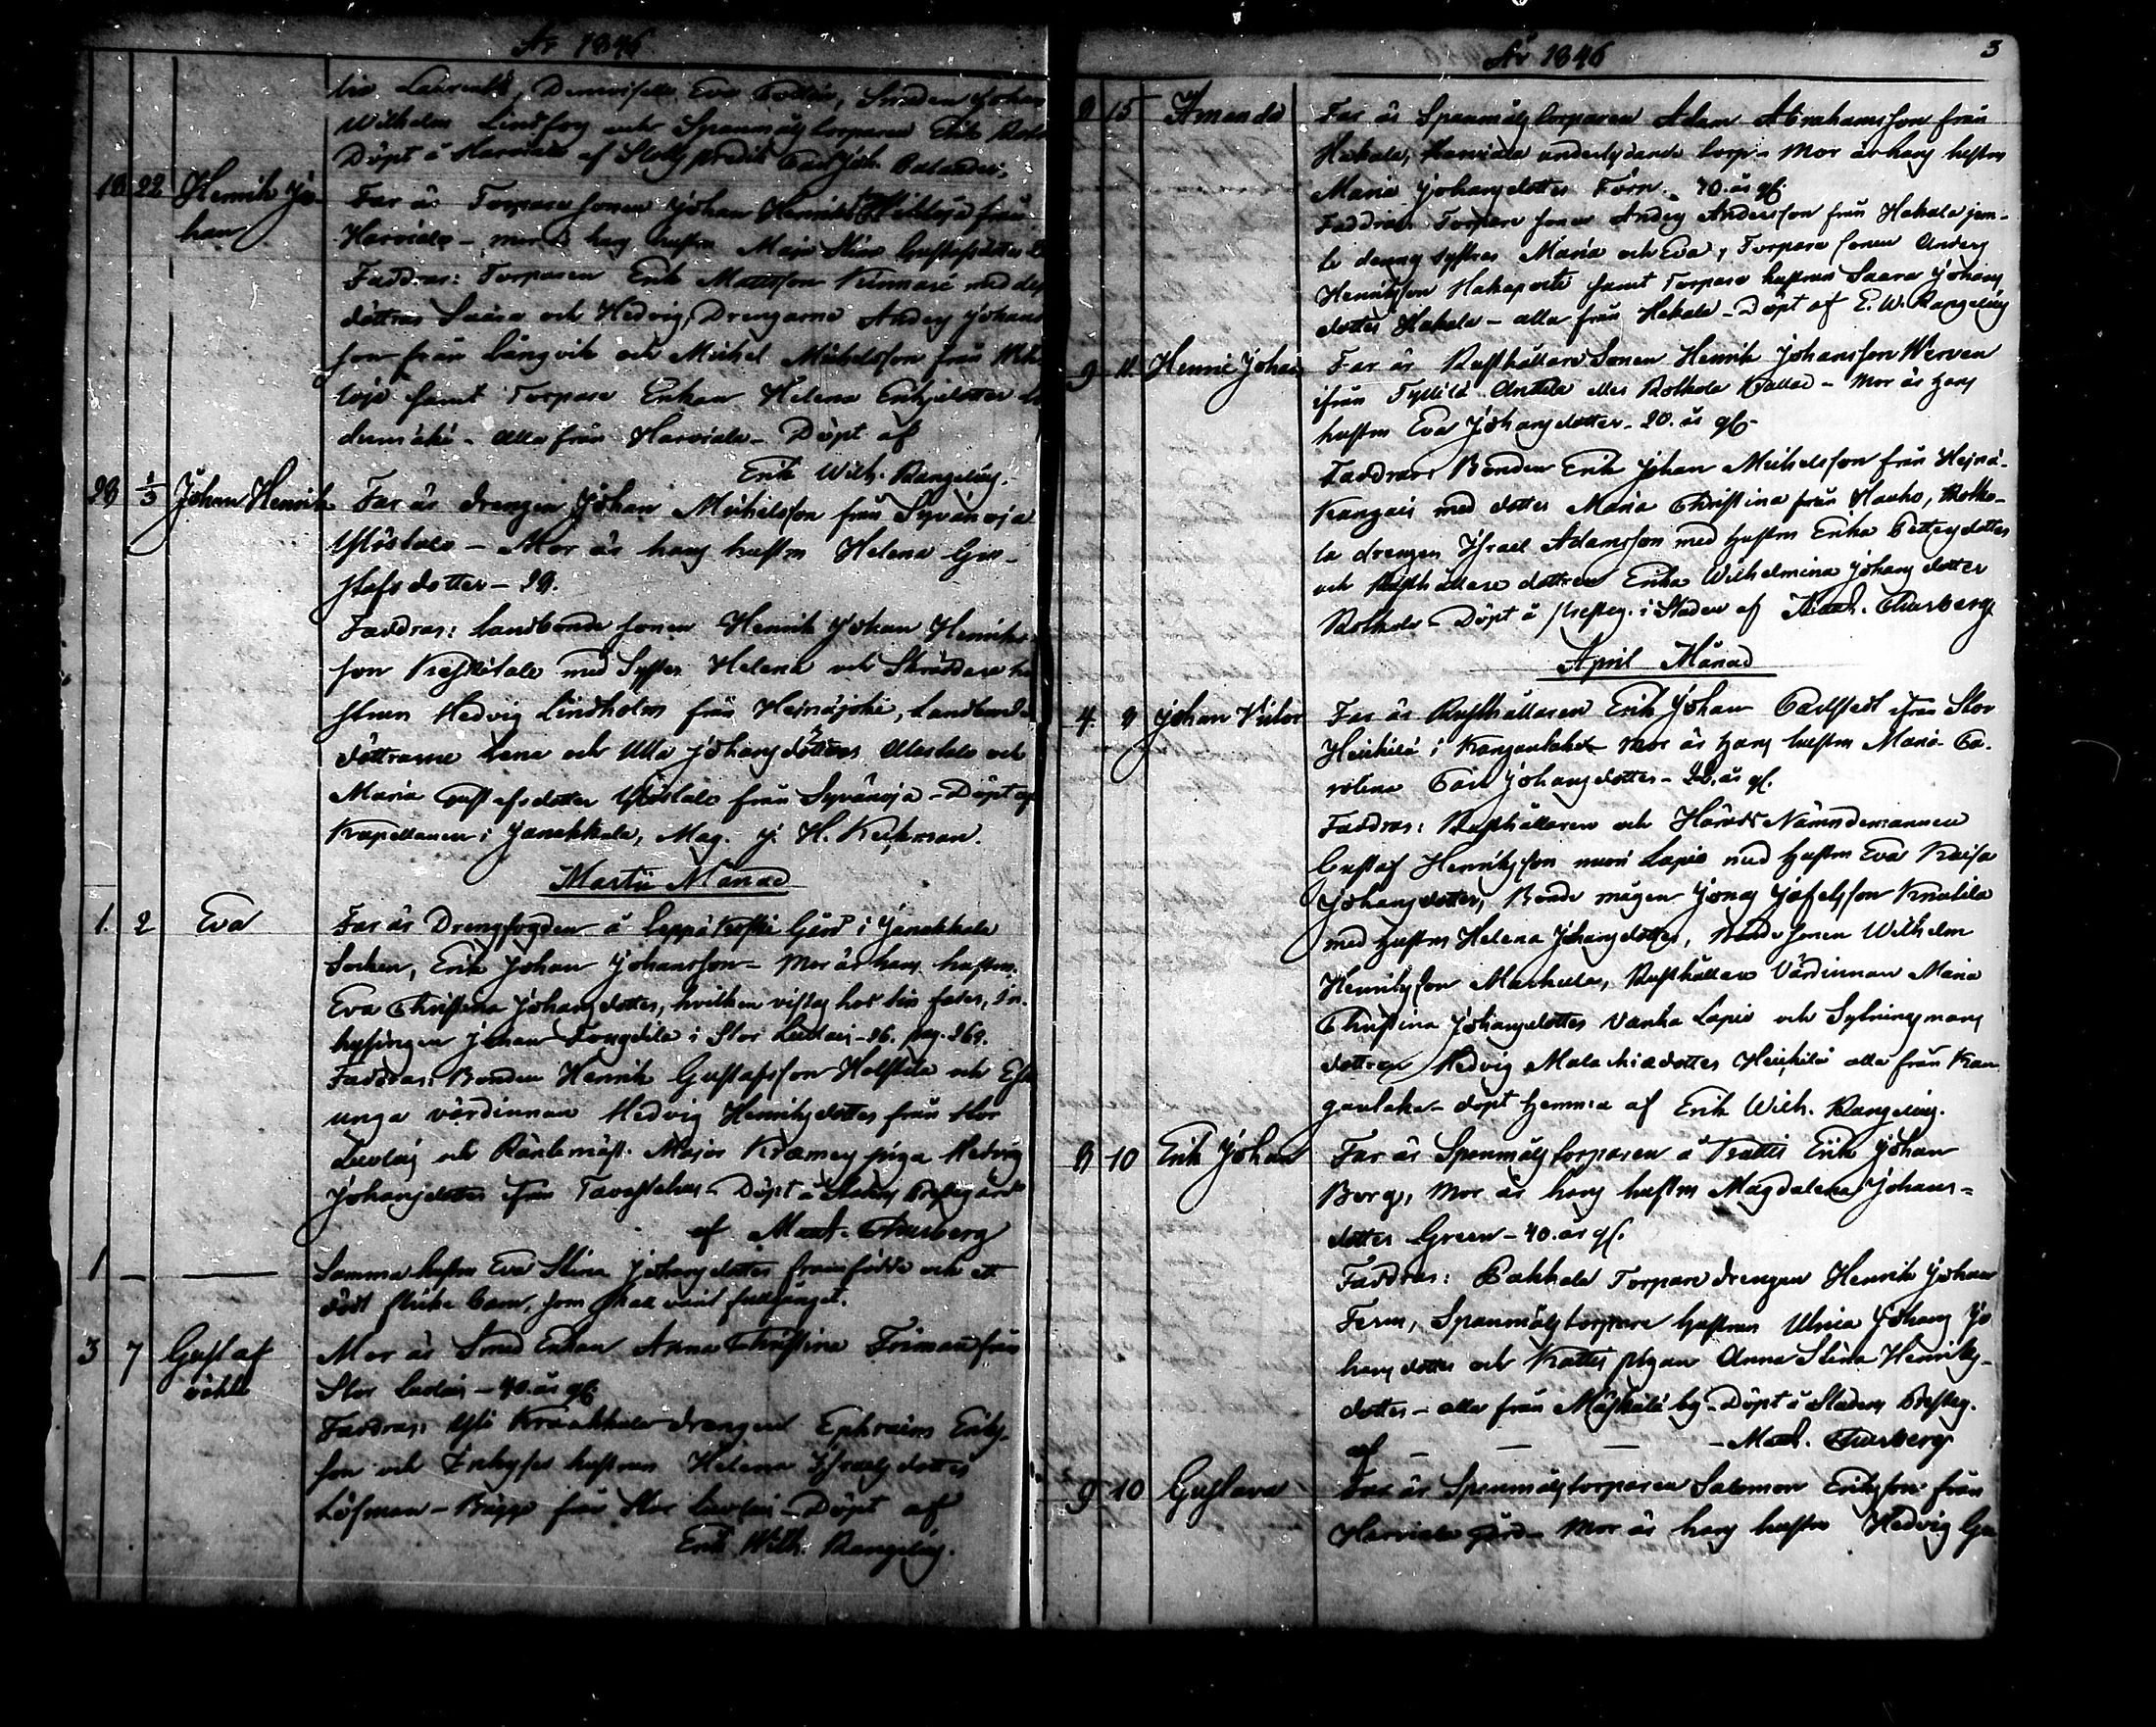 År 1846
Laurent, Demoiselle Eva Collin, Smeden Johan
Wilhelm Lindfors och Spanmåls torparen Erik
Döpt å Harviala af Slotts predik. Carl Joh. Bolander.
18 22 Henrik Jo-
han
Far är Torpare sonen Johan Henriks från
Harviala - mor är hans hustru Maja Stina Gustafsdotter
Faddrar: Torparen Erik Mattsson Kinnari med des
döttrar Saara och Hedvig, Drengarne Anders Johans
son från Långvik och Michel Michelsson från
samt Torpare Enkan Helena Eriksdotter
- alla från Harviala - Döpt af
Erik Wilh. Rangelius.
28 1/3 Johan Henrik
Far är drengen Johan Michelsson från Syvänoja
Ylöstalo - Mor är hans hustru Helena Gu-
stafsdotter - 29.
Faddrar: Landbonde sonen Henrik Johan Henriks-
son Keskitalo med Syster Helena och Skräddare hu
strun Hedvig Lindholm från Heinäjoki, Landbonde
döttrarne Lena och Ulla Johans döttrar Alastalo och
Maria Gustafsdotter Ylöstalo från Syvänoja - Döpt af
Kapellanen i Janakkala, Mag. J. H. Keckman.
Martii Månad
1. 2 Eva
Far är Drengfogden å Leppäkoski Gård i Janakkala
Socken, Erik Johan Johansson - Mor är hans hustru
Eva Christina Johansdotter, hvilken vistas hos sin fader, In-
hysingen Johan i Stor Luolais - 26. pag. 269.
Faddrar: Bonden Henrik Gustafsson Holstila och
unga värdinnan Hedvig Henriksdotter från Stor
Luolais och Räntemäst. Major piga Hedvig
Johansdotter från Tavastehus - Döpt å Stadens Prestegård
af Math. Thusberg
1 - -
Samma hustru Eva Stina Johansdotter framfödde och ett
död flicke barn, som skall varit fullgånget.
3 7 Gustaf
oäkta
Mor är Smed Enkan Anna Christina Friman från
Stor Luolais - 40. år gl.
Faddrar: Yli Kraakkala drengen Ephraim Eriks-
son och Inhyses hustrun Helena Israels dotter
Löfman - från Stor Luolais - Döpt af
Erik Wilh. Rangelius.
År 1846
3
9 15 Amanda
Far är Spanmåls torparen Adam Abrahamsson från
Hakala, Harviala underlydande torp - Mor är hans hustru
Maria Johansdotter Förn. - 40. år gl.
Faddrar: Torpare sonen Anders Andersson från Hakala jem-
te dennes systrar Maria och Eva, Torpare sonen Anders
Henriksson Hakaportti samt Torpare hustrun Saara Johans
dotter Hakala - alla från Hakala - Döpt af E. W. Rangelius
9 11. Henric Johan
Far är Rusthållare Sonen Henrik Johansson Werven
ifrån Tyllilä Anttila eller Rotkola Kallad - Mor är hans
hustru Eva Johansdotter - 20. år gl.
Faddrar: Bonden Erik Johan Michelsson från Heinä-
kangais med dotter Maria Christina från Hauho, Rotko-
la drengen Israel Adamsson med hustru Erika Pettersdotter
och Rusthållare dottren Erika Wilhelmina Johans dotter
Rotkola - Döpt å Presteg. i Staden af Math. Thusberg
April Månad
4. 9 Johan Victor
Far är Rusthållaren Erik Johan Carlstedt ifrån Stor
Heikkilä i Kanganlaka - Mor är hans hustru Maria Ca-
rolina Carl Johansdotter - 28. år gl.
Faddrar: Rusthållaren och Härads Nämndemannen
Gustaf Henriksson nuori Lapio med hustru Eva Kaisa
Johansdotter, Bonde mågen Jonas Josefsson Knuutila
med hustru Helena Johansdotter, Bonde sonen Wilhelm
Henriksson Markula, Rusthållare Värdinnan Maria
Christina Johansdotter Vanha Lapio och Sytningsmans
dottren Hedvig Malachiædotter Heikkilä alla från Kan-
ganlaka - döpt hemma af Erik Wilh. Rangelius.
8 10 Erik Johan
Far är Spanmåls torparen å Katti Erik Johan
Berg, Mor är hans hustru Magdalena Johans-
dotter Green - 40. år gl.
Faddrar: Pakkala Torpare drengen Henrik Johan
Ferm, Spanmåls torpare hustrun Ulrica Johans Jo
hans dotter och Kattis pigan Anna Stina Henriks-
dotter - alla från Mäskälä by - Döpt å Stadens Presteg.
af - - - Math. Thusberg
9 10 Gustava
Far är Spanmåls torparen Salomon Eriksson från
Harviala gård - Mor är hans hustru Hedvig Gu